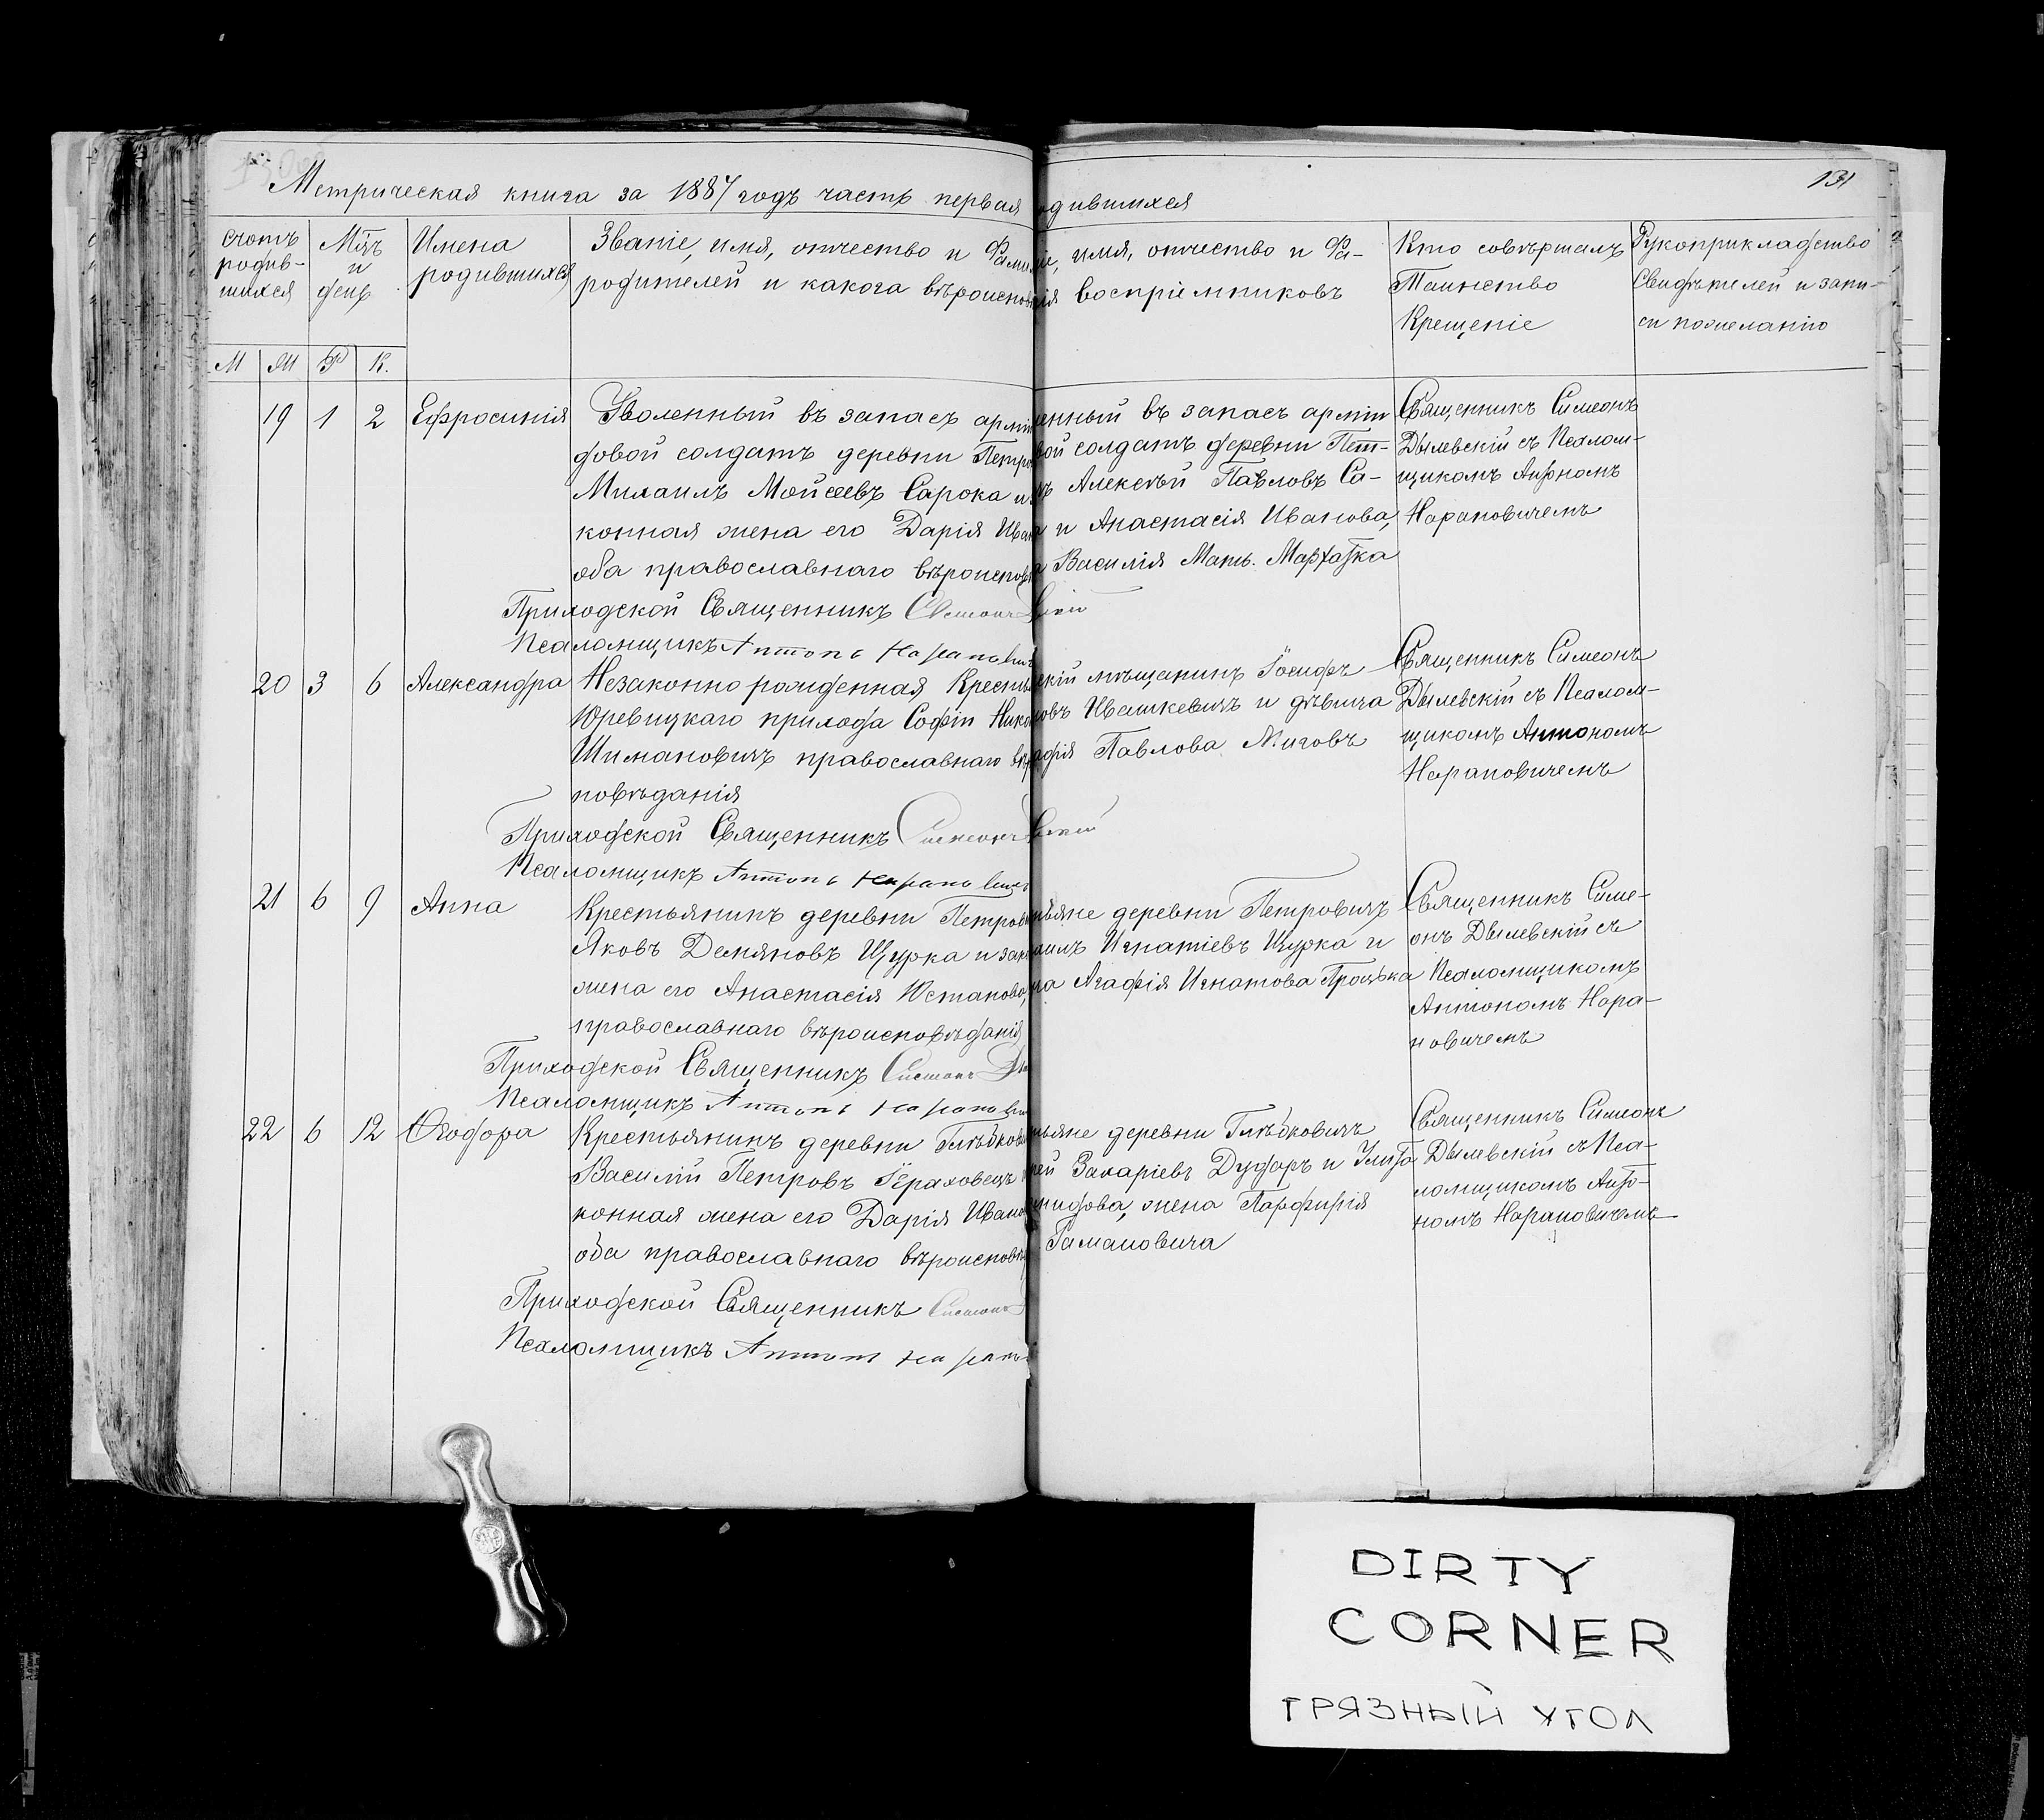 Метрическая книга за 1887 годъ часть первая
одившихся
131
счотъ родив-шихся
Мѣць и день
Имена родившихся
Званіе, имя, отчество и Фами
родителей и какога вѣроиспов
іе, имя, отчество и Фа-
ія воспріемниковъ
Кто совѣршалъ
Таинство
Крещеніе
Рукоприкладство
Свидѣтелей и запи-
си пожеланію
М Ж Р К.
19 1 2 Ефросинія
Уволенный въ запасъ арміи
довой солдатъ деревни Петро
Михаилъ Мойсеевъ Сарока и
конная жена его Дарія Иван
оба православнаго вѣроиспов
Приходской Священникъ Симеон
Псаломщикъ Антонъ Наранович
енный въ запасъ арміи
вой солдатъ деревни Пет-
ъ Алексѣй Павловъ Са-
а и Анастасія Иванова,
а Василія Мат.
вскій
Священникъ Симеонъ
Дылевскій съ Псалом-
щикомъ Антономъ
Нарановичемъ
20 3 6 Александра
Незаконно рожденная Кресть
Юревицкаго прихода Софіи Нико
Шимановичъ православнаго вѣр
повѣданія
Приходской Священникъ Симеонъ
Псаломщикъ Антонъ Наранович
скій мѣщанинъ Іосифъ
овъ Ивашкевичъ и дѣвица
афія Павлова Миговъ
вскій
Священникъ Симеонъ
Дылевскій съ Псалом-
щикомъ Антономъ
Нарановичемъ
21 6 9 Анна
Крестьянинъ деревни Петрови
Яковъ Демяновъ Щурка и зако
жена его Анастасія Юстанова,
православнаго вѣроисповѣданія
Приходской Священникъ Симеонъ Ды
Псаломщикъ Антонъ Наранович
тьяне деревни Петровичъ
аилъ Игнатіевъ Щурка и
на Агафія Игнатова Процька
Священникъ Симе-
онъ Дылевскій съ
Псаломщикомъ
Антономъ Нара-
новичемъ
22 6 12 Ѳеодора
Крестьянинъ деревни Глѣбкови
Василій Петровъ
конная жена его Дарія Ивано
оба православнаго вѣроисповѣ
Приходской Священникъ Симеонъ
Псаломщикъ Антонъ Нарано
тьяне деревни Глѣбковичъ
ей Захаріевъ Дударъ и
жена Парфирія
Гамановича
Священникъ Симеонъ
Дылевскій съ Пса-
ломщикомъ Анто-
номъ Нарановичемъ
DIRTY
CORNER
ГРЯЗНЫЙ УГОЛ